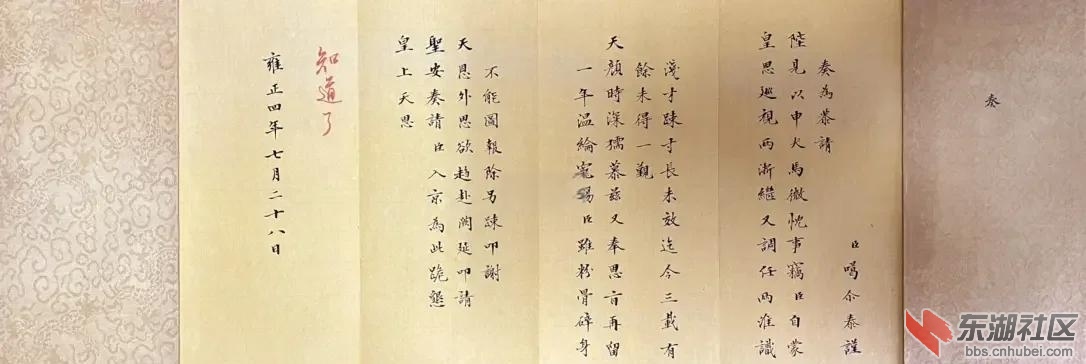 奏
臣噶尒泰謹
奏為恭請
陛見以申犬馬微忱事竊臣自蒙
皇恩廵視两浙繼又調任两淮識
淺才踈寸長未效迄今三載有
餘未得一覲
天顔時深孺慕兹又奉恩旨再留
一年温綸寵錫臣雖粉骨碎身
不能圖報除另踈叩謝
天恩外思欲趋赴闕延叩請
聖安奏請臣入京為此跪懇
皇上天恩
知道了
雍正四年七月二十八日
东湖社区
bbs.cnhubei.com